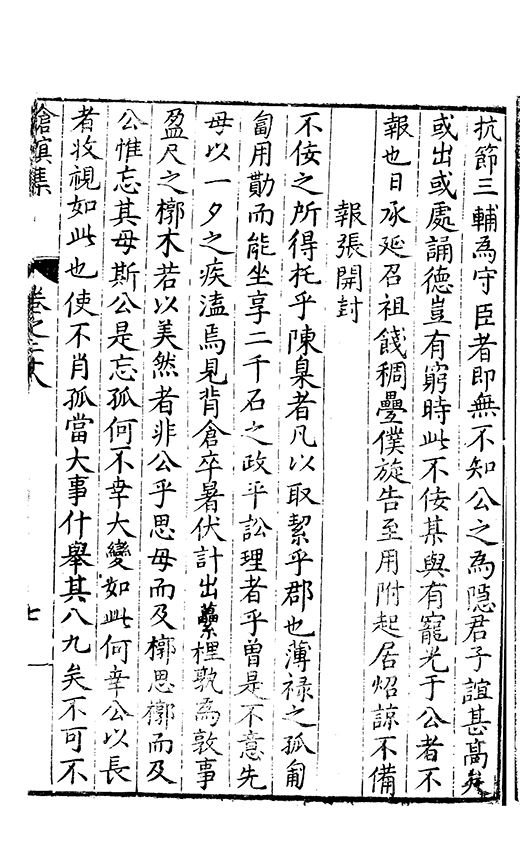 抗節三輔為守臣者即無不知公之為隱君子誼甚髙矣
或出或處誦德豈有窮時此不佞某與有寵光于公者不
報也日承延召祖餞稠疊僕旋告至用附起居炤諒不備
報張開封
不佞之所得托乎陳臬者凡以取絜乎郡也薄祿之孤匍
匐用勩而能坐享二千石之政平訟理者乎曽是不意先
母以一夕之疾溘焉見背倉卒暑伏計出蘽梩孰為敦事
盈尺之槨木若以美然者非公乎思母而及槨思槨而及
公惟忘其母斯公是忘孤何不幸大變如此何幸公以長
者收視如此也使不肖孤當大事什舉其八九矣不可不
滄溟集
卷之二十八
七